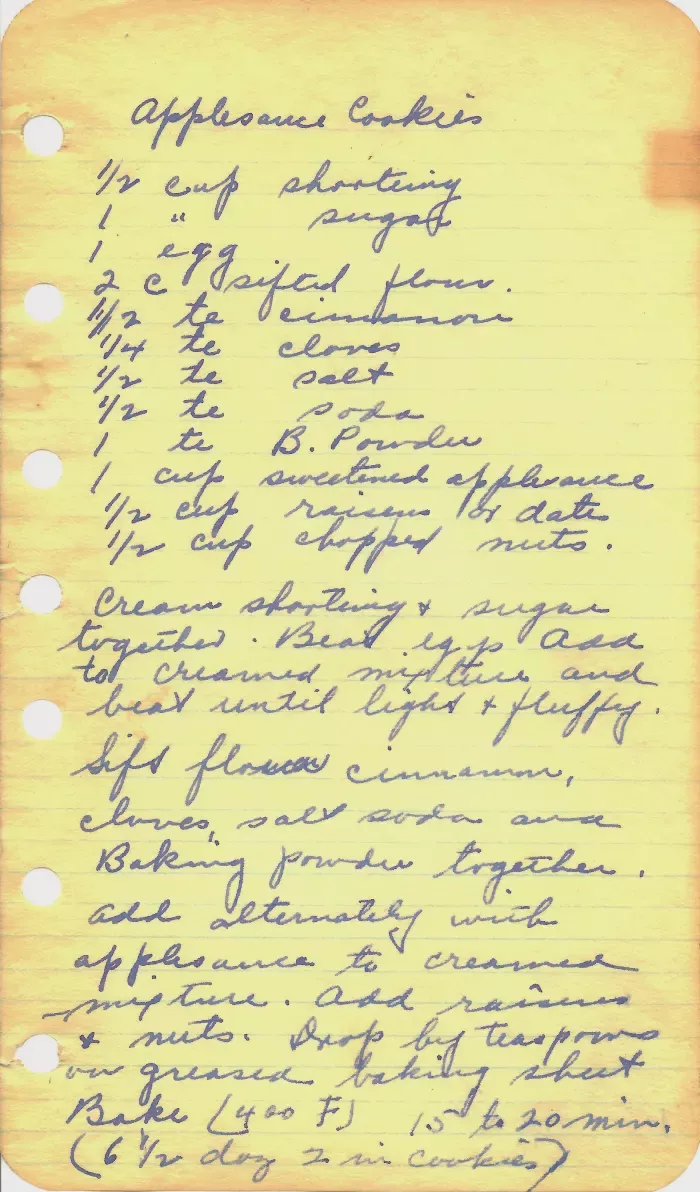 Applesauce Cookies
1/2 cup shorteing
1 " sugar
1 egg
2 c sifted flour.
1/2 te cinnamon
1/4 te cloves
1/2 te salt
1/2 te soda
1 te B. Powder
1 cup sweetened applesauce
1/2 cup raisens or dates
1/2 cup chopped nuts.
Cream shorteing & sugar
together. Beat egg Add
to creamed mixture and
beat until light & fluffy.
Sift flour cinnamon,
cloves, salt soda and
Baking powder together.
Add alternately with
applesauce to creamed
mixture. Add raisins
& nuts. Drop by teaspoons
on greased baking sheet
Bake (400 F) 15 to 20 min.
(6 1/2 doz 2 in cookies)